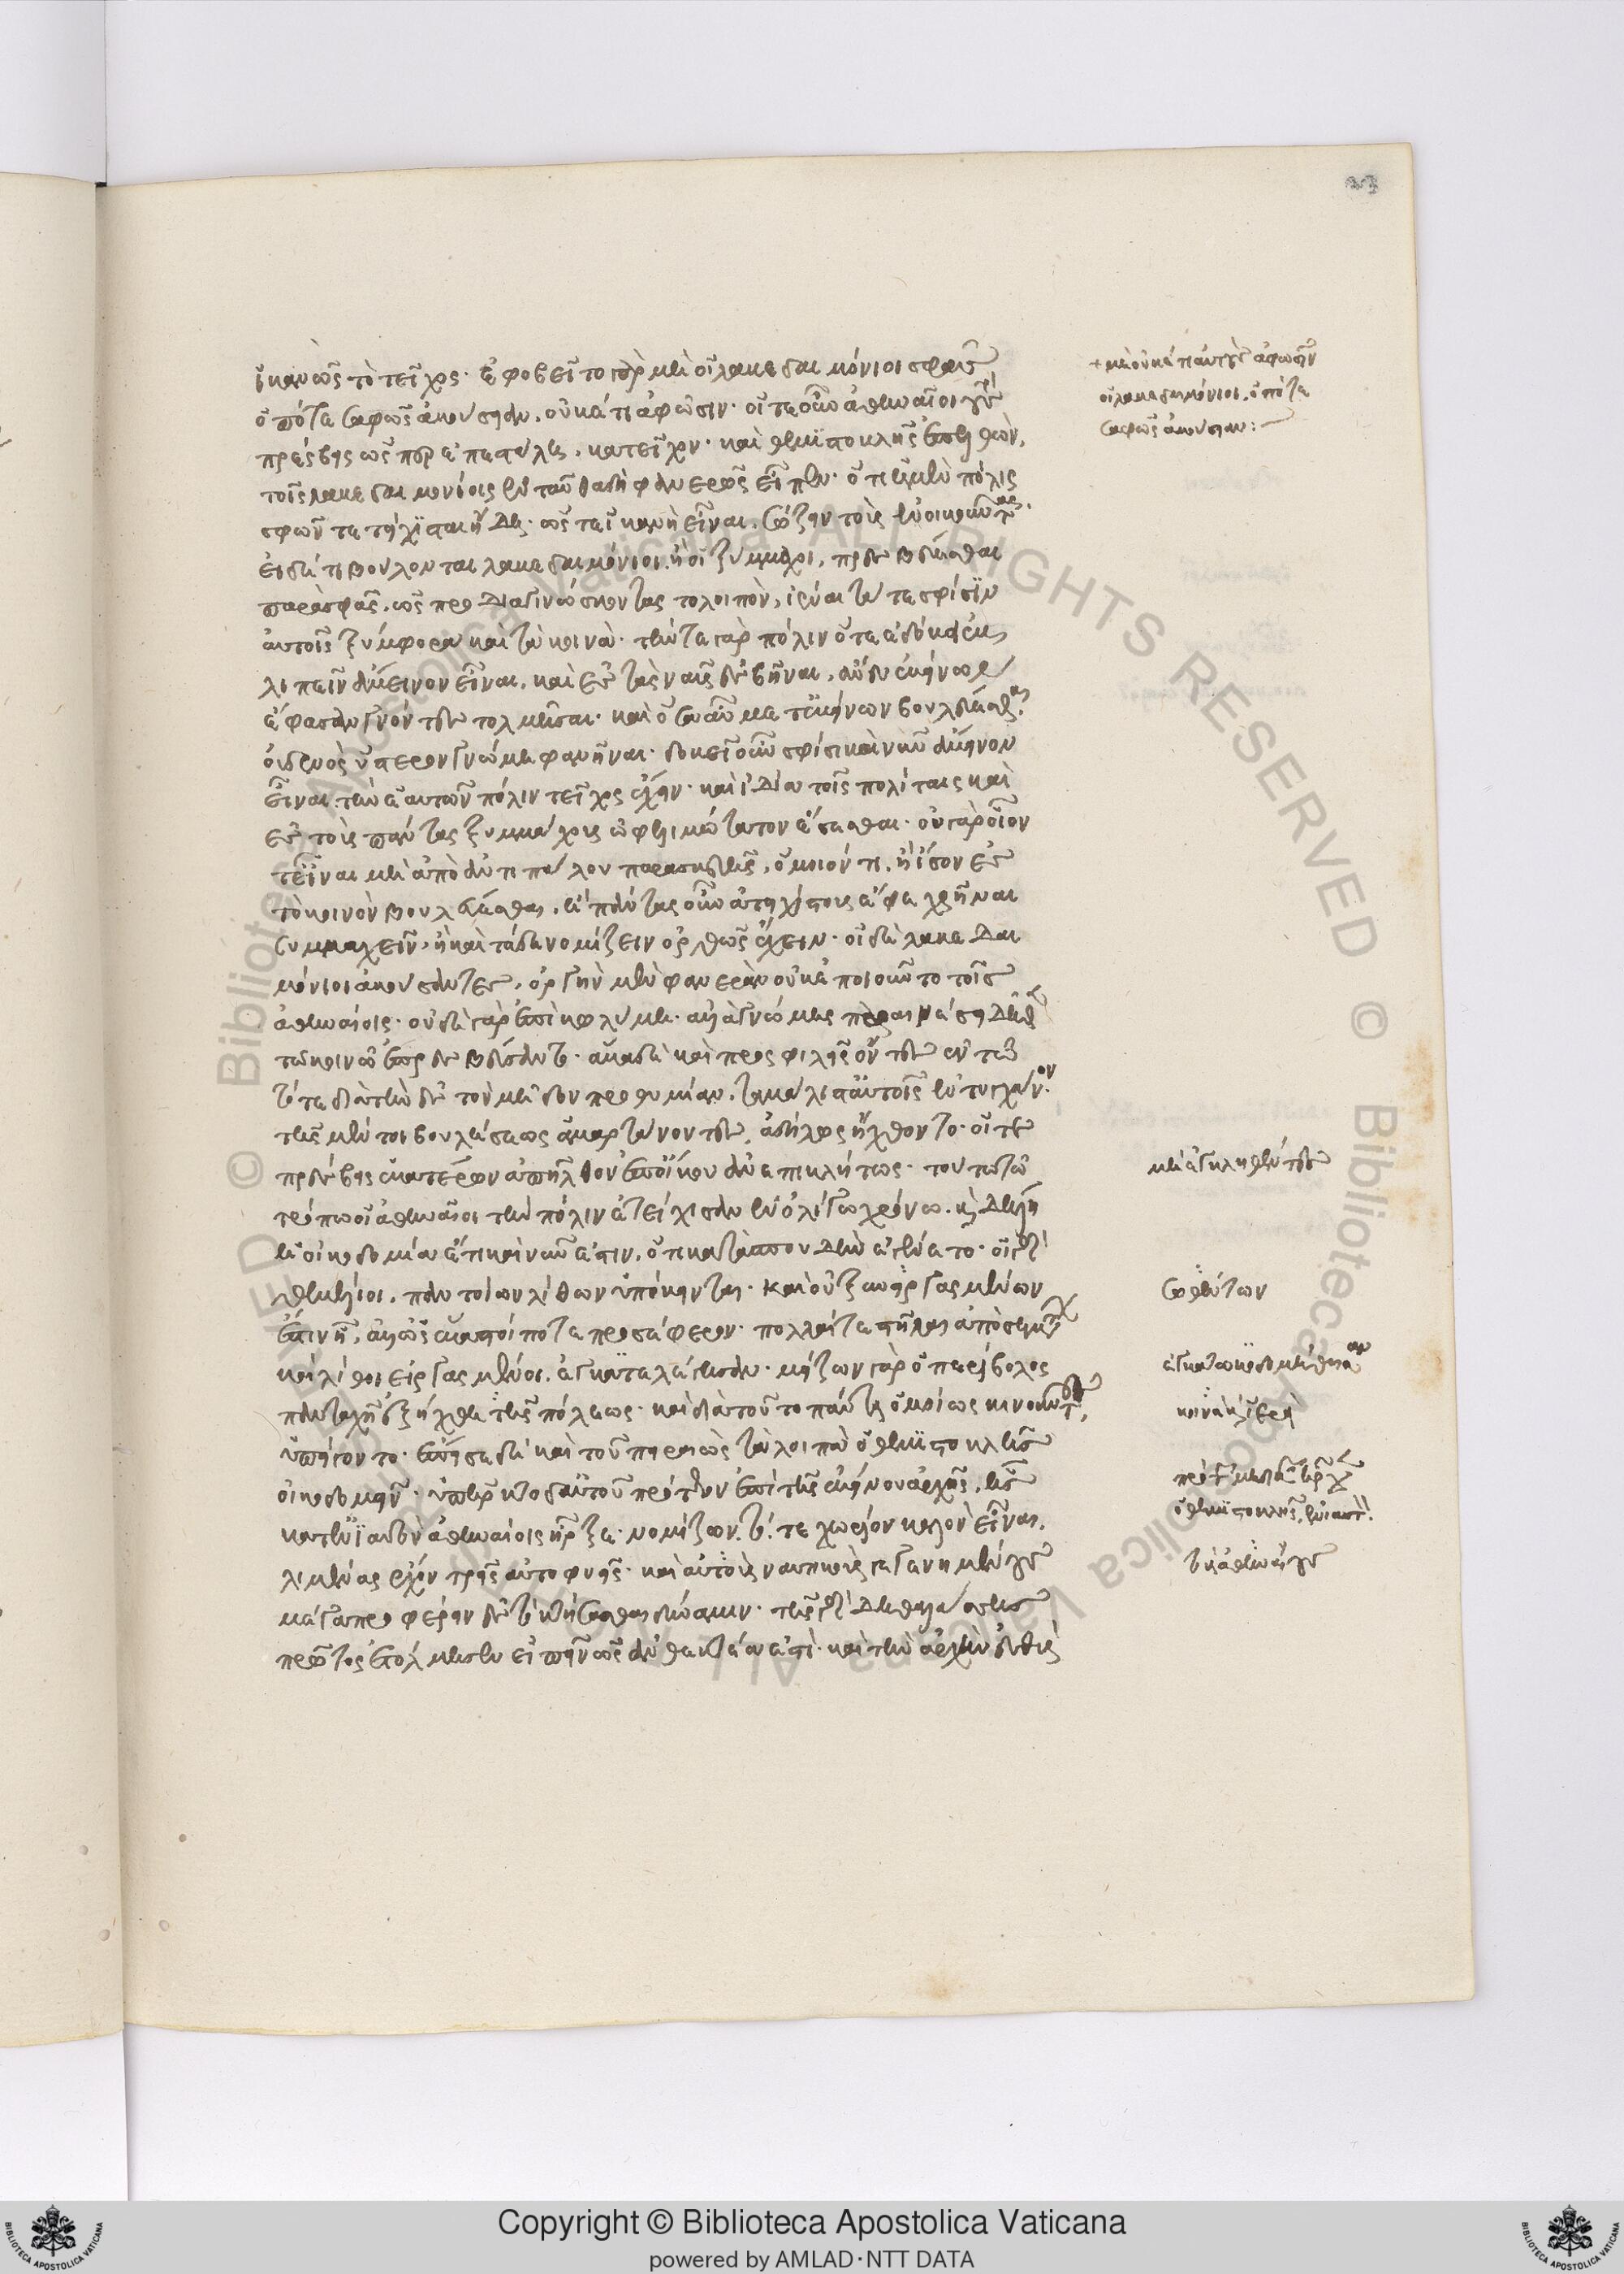 ἱκανῶς τὸ τεῖχος· ἐφοβεῖτο γὰρ μὴ οἱ λακεδαιμόνιοι σφᾶς
ὁπότε σαφῶς ἀκούσειαν, οὐκέτι ἀφῶσιν· οἵ τε οὖν ἀθηναῖοι τοὺς
πρέσβεις ὥσπερ ἐπεστάλη, κατεῖχον· καὶ θεμιστοκλῆς ἐπελθὼν,
τοῖς λακεδαιμονίοις ἐνταῦθα δὴ φανερῶς εἶπεν· ὅτι ἡ μὲν πόλις
σφῶν τετείχισται ἤδη· ὥστε ἱκανὴ εἶναι, σώζειν τοὺς ἐνοικοῦντας·
εἰ δέ τι βούλονται λακεδαιμόνιοι, ἢ οἱ ξύμμαχοι, πρεσβεύεσθαι
παρὰ σφᾶς, ὡς προδιαγινώσκοντας τολοιπὸν, ἰέναι τά τε σφίσϊν
αὐτοῖς ξύμφορα καὶ τὰ κοινὰ· τήν τε γὰρ πόλιν ὅτε ἐδόκει ἐκ
λιπεῖν ἄμεινον εἶναι, καὶ ἐς τὰς ναῦς ἐσβῆναι, ἄνευ ἐκείνων
ἔφασαν γνόντες τολμῆσαι· καὶ ὅσα αὖ μετ᾽ ἐκείνων βουλεύεσθαι
οὐδενὸς ὕστερον γνώμη φανῆναι· δοκεῖ οὖν σφίσι καὶ νῦν ἄμεινον
εἶναι τὴν ἑαυτῶν πόλιν τεῖχος ἔχειν· καὶ ἰδία τοῖς πολίταις καὶ
ἐς τοὺς πάντας ξυμμάχους ὠφελιμώτατον ἔσεσθαι· οὐ γὰρ οἷόν
τ᾽ εἶναι μὴ ἀπὸ ἀντιπάλου παρασκευῆς, ὅμοιόν τι, ἢ ἴσον ἐς
τὸ κοινὸν βουλεύεσθαι, ἢ πάντας οὖν ἀτειχίστους ἔφη χρῆναι
ξυμμαχεῖν, ἢ καὶ τάδε νομίζειν ὀρθῶς ἔχειν· οἱ δὲ λακεδαι
μόνιοι ἀκούσαντες, ὀργὴν μὲν φανερὰν οὐκ ἐποιοῦντο τοῖς
ἀθηναίοις· οὐδὲ γὰρ ἐπὶ κωλύμη· ἀλλὰ γνώμης παραινέσει δῆθεν
τῶ κοινῶ ἐπρεσβεύσαντο· ἅμα δὲ καὶ προσφιλεῖς ὄντες ἐν τῶ
τότε διὰ τὴν ἐς τὸν μῆδον προθυμίαν, τὰ μάλιστ᾽ αὐτοῖς ἐτύγχανον·
τῆς μέντοι βουλήσεως ἁμαρτάνοντες, ἀδήλως ἤχθοντο· οἵ τε
πρέσβεις ἑκατέρων ἀπῆλθον ἐπ᾽ οἴκου ἀνεπικλήτως· τούτω τῶ
τρόπω οἱ ἀθηναῖοι τὴν πόλιν ἐτείχισαν ἐν ὀλίγω χρόνω. καὶ δήλη
ἡ οἰκοδομία ἔτι καὶ νῦν ἐστιν, ὅτι κατὰ σπουδὴν ἐγένετο· οἱ γὰρ
θεμέλιοι, παντοίων λίθων ὑπόκεινται· καὶ οὐ ξυνειργασμένων
ἔστιν ἧ, ἀλλ᾽ ὡς ἕκαστοί ποτε προσέφερον· πολλαί τε στῆλαι ἀπὸ σημάτων
καὶ λίθοι εἰργασμένοι, ἐγκατελέγησαν· μείζων γὰρ ὁ περίβολος
πανταχῆ ἐξήχθη τῆς πόλεως· καὶ διὰ τοῦτο πάντα ὁμοίως κινοῦντες,
ἠπείγοντο· ἔπεισε δὲ καὶ τοῦ πειραιῶς τὰ λοιπὰ ὁ θεμιστοκλῆς
οἰκοδομεῖν· ὑπῆρκτο δ᾽ αὐτοῦ πρότερον ἐπὶ τῆς ἐκείνου ἀρχῆς, ἧς
κατ᾽ ἐνϊαυτὸν ἀθηναίοις ἦρξε· νομίζων τό τε χωρίον καλὸν εἶναι,
λιμένας ἔχον τρεῖς αὐτοφυεῖς· καὶ αὐτοὺς ναυτικοὺς γεγενημένους
μέγα προφέρειν ἐς τὸ κτήσασθαι δύναμιν· τῆς γὰρ δὴ θαλάσσης
πρῶτος ἐτόλμησεν εἰπεῖν ὡς ἀνθεκτέα ἐστὶ· καὶ τὴν ἀρχὴν εὐθὺς
+ μὴ οὐκέτι αὐτοὺς ἀφῶσιν
οἱ λακεδαιμόνιοι, ὁπότε
σαφῶς ἀκούσειαν:
μὴ ἐγκληθέντες
συνθέτων
ἐγκατωκοδομήθησαν
κοινὰ καὶ ἱερὰ
πρὸ τῶν μηδικῶν ἦρχε
ὁ θεμιστοκλῆς, ἐνιαυτὸν
τοὺς ἀθηναίους